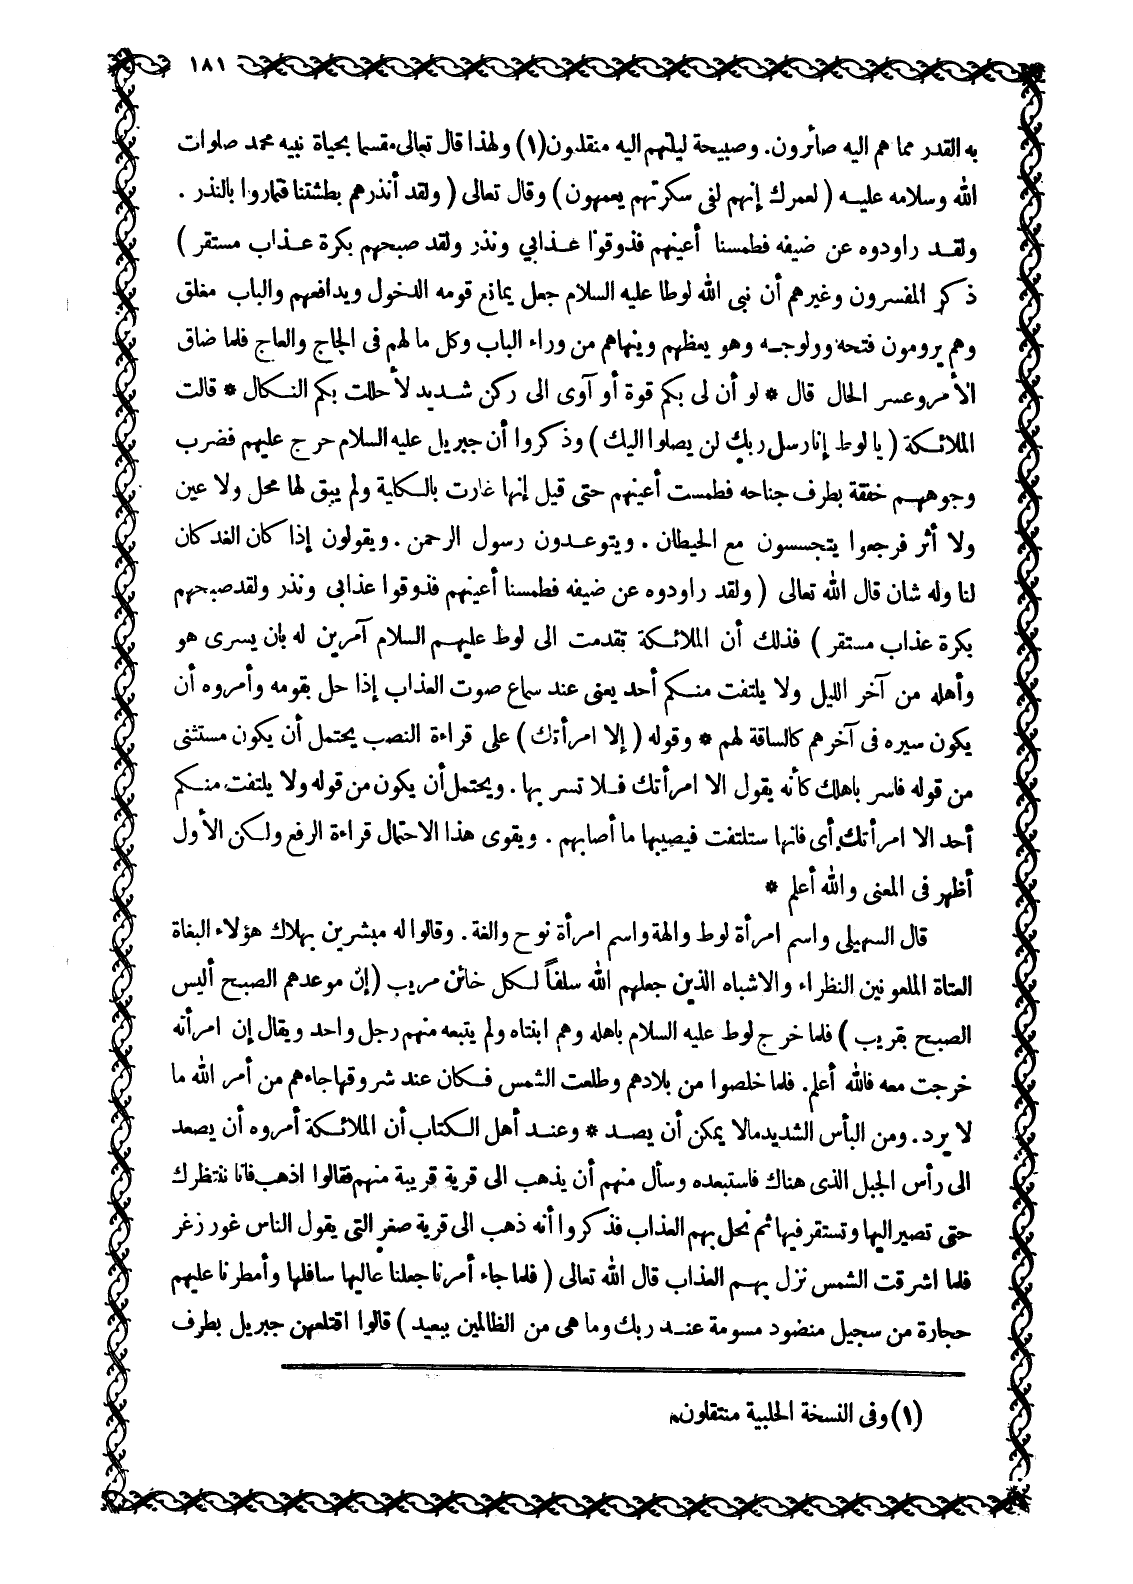 ١٨١
به القدر مما هم اليه صائرون. وصبيحة ليلتهم اليه منقلبون(١) ولهذا قال تعالى مقسما بحياة نبيه محمد صلوات
الله وسلامه عليه ( لعمرك إنهم لفى سكرتهم يعمهون ) وقال تعالى ( ولقد أنذرهم بطشتنا فتماروا بالنذر .
ولقد راودوه عن ضيفه فطمسنا أعينهم فذوقوا عذابي ونذر ولقد صبحهم بكرة عذاب مستقر )
ذكر المفسرون وغيرهم أن نبى الله لوطا عليه السلام جعل يمانع قومه الدخول ويدافعهم والباب مغلق
وهم يرومون فتحه وولوجه وهو يعظهم وينهاهم من وراء الباب وكل ما لهم فى الجاج والعاج فلما ضاق
الأمر وعسر الحال قال * لو أن لى بكم قوة أو آوى الى ركن شديد لأحللت بكم النكال * قالت
الملائكة ( يا لوط إنا رسل ربك لن يصلوا اليك ) وذكروا أن جبريل عليه السلام خرج عليهم فضرب
وجوههم خفقة بطرف جناحه فطمست أعينهم حتى قيل إنها غارت بالكلية ولم يبق لها محل ولا عين
ولا أثر فرجعوا يتجسسون مع الحيطان . ويتوعدون رسول الرحمن . ويقولون إذا كان الغد كان
لنا وله شان قال الله تعالى ( ولقد راودوه عن ضيفه فطمسنا أعينهم فذوقوا عذابي ونذر ولقد صبحهم
بكرة عذاب مستقر ) فذلك أن الملائكة تقدمت الى لوط عليهم السلام آمرين له بان يسرى هو
وأهله من آخر الليل ولا يلتفت منكم أحد يعنى عند سماع صوت العذاب إذا حل بقومه وأمروه أن
يكون سيره فى آخرهم كالساقة لهم * وقوله ( إلا امرأتك ) على قراءة النصب يحتمل أن يكون مستثنى
من قوله فاسر باهلك كأنه يقول الا امرأتك فلا تسر بها . ويحتمل أن يكون من قوله ولا يلتفت منكم
أحد الا امرأتك أى فانها ستلتفت فيصيبها ما أصابهم . ويقوى هذا الاحتمال قراءة الرفع ولكن الأول
أظهر فى المعنى والله أعلم *
قال السهيلى واسم امرأة لوط والهة واسم امرأة نوح والغة . وقالوا له مبشرين بهلاك هؤلاء البغاة
العتاة الملعونين النظراء والاشباه الذين جعلهم الله سلفاً لكل خائن مريب ( إن موعدهم الصبح أليس
الصبح بقريب ) فلما خرج لوط عليه السلام باهله وهم ابنتاه ولم يتبعه منهم رجل واحد ويقال إن امرأته
خرجت معه فالله أعلم. فلما خلصوا من بلادهم وطلعت الشمس فكان عند شروقها جاءهم من أمر الله ما
لا يرد. ومن البأس الشديد مالا يمكن أن يصد * وعند أهل الكتاب أن الملائكة أمروه أن يصعد
الى رأس الجبل الذى هناك فاستبعده وسأل منهم أن يذهب الى قرية قريبة منهم فقالوا اذهب فانا ننتظرك
حتى تصير اليها وتستقر فيها ثم نحل بهم العذاب فذكروا أنه ذهب الى قرية صغر التى يقول الناس غور زغر
فلما اشرقت الشمس نزل بهم العذاب قال الله تعالى ( فلما جاء أمرنا جعلنا عاليها سافلها وأمطرنا عليهم
حجارة من سجيل منضود مسومة عند ربك وما هى من الظالمين ببعيد ) قالوا اقتلعهن جبريل بطرف
(١) وفى النسخة الحلبية منتقلون